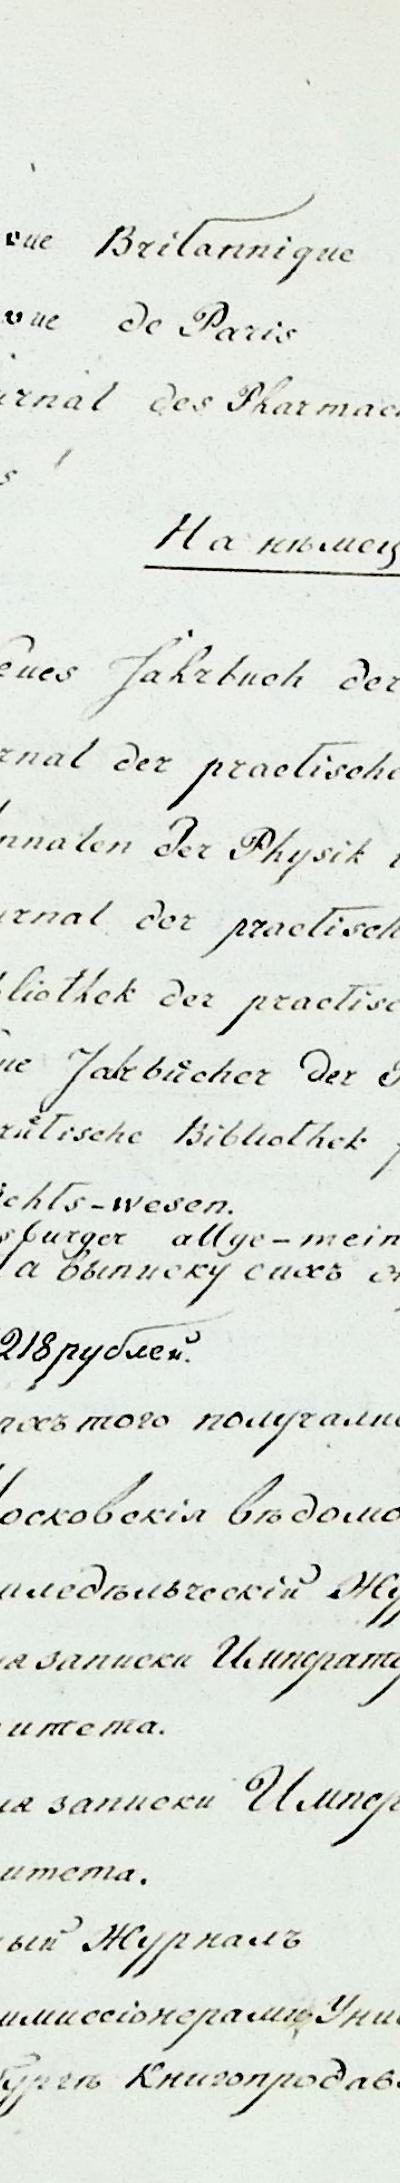 vue Britannique
vue de Paris
urnal des Pharmac
s
На нѣмец
eues Jahrbuch der
rnal der practische
nnalen der Physik
urnal der practisch
bliothek der practisc
ue Jahrbücher der
Bibliothek
ichts-wesen.
sburger allge-mein
а выписку сихъ
218 рублей.
того получалис
осковскія вѣдомо
аледѣльческій Жу
я записки Императ
итета.
ія записки Импер
итета.
ый Журналъ
ммиссіонерами Уни
бургѣ Книгопродав